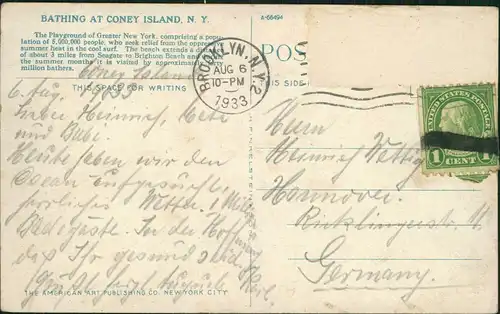 BATHING AT CONEY ISLAND, N. Y.
The Playground of Greater New York, comprising a popu-
lation of 5,900,000 people, who seek relief from the oppressive
summer heat in the cool surf. The beach extends a distance
of about 3 miles from Seagate to Brighton Beach and
the summer months it is visited by approximately
million bathers.
A-66494
POST
THIS SPACE FOR WRITING
THIS SIDE
BROOKLYN, N.Y. 2
AUG 6
10-PM
1933
UNITED STATES POSTAGE
1 CENT 1
Coney Island
6. Aug. 1933
Lieber Heinrich, Meta
und Bubi.
Heute haben wir den
Ocean aufgesucht,
herrliches Wetter. 1 Million
Badegäste. In der Hoff
das Ihr gesund seid
Grüßt herzl. August
Herrn
Heinrich Wettig
Hannover.
Ricklingerstr.
Germany.
THE AMERICAN ART PUBLISHING CO. NEW YORK CITY